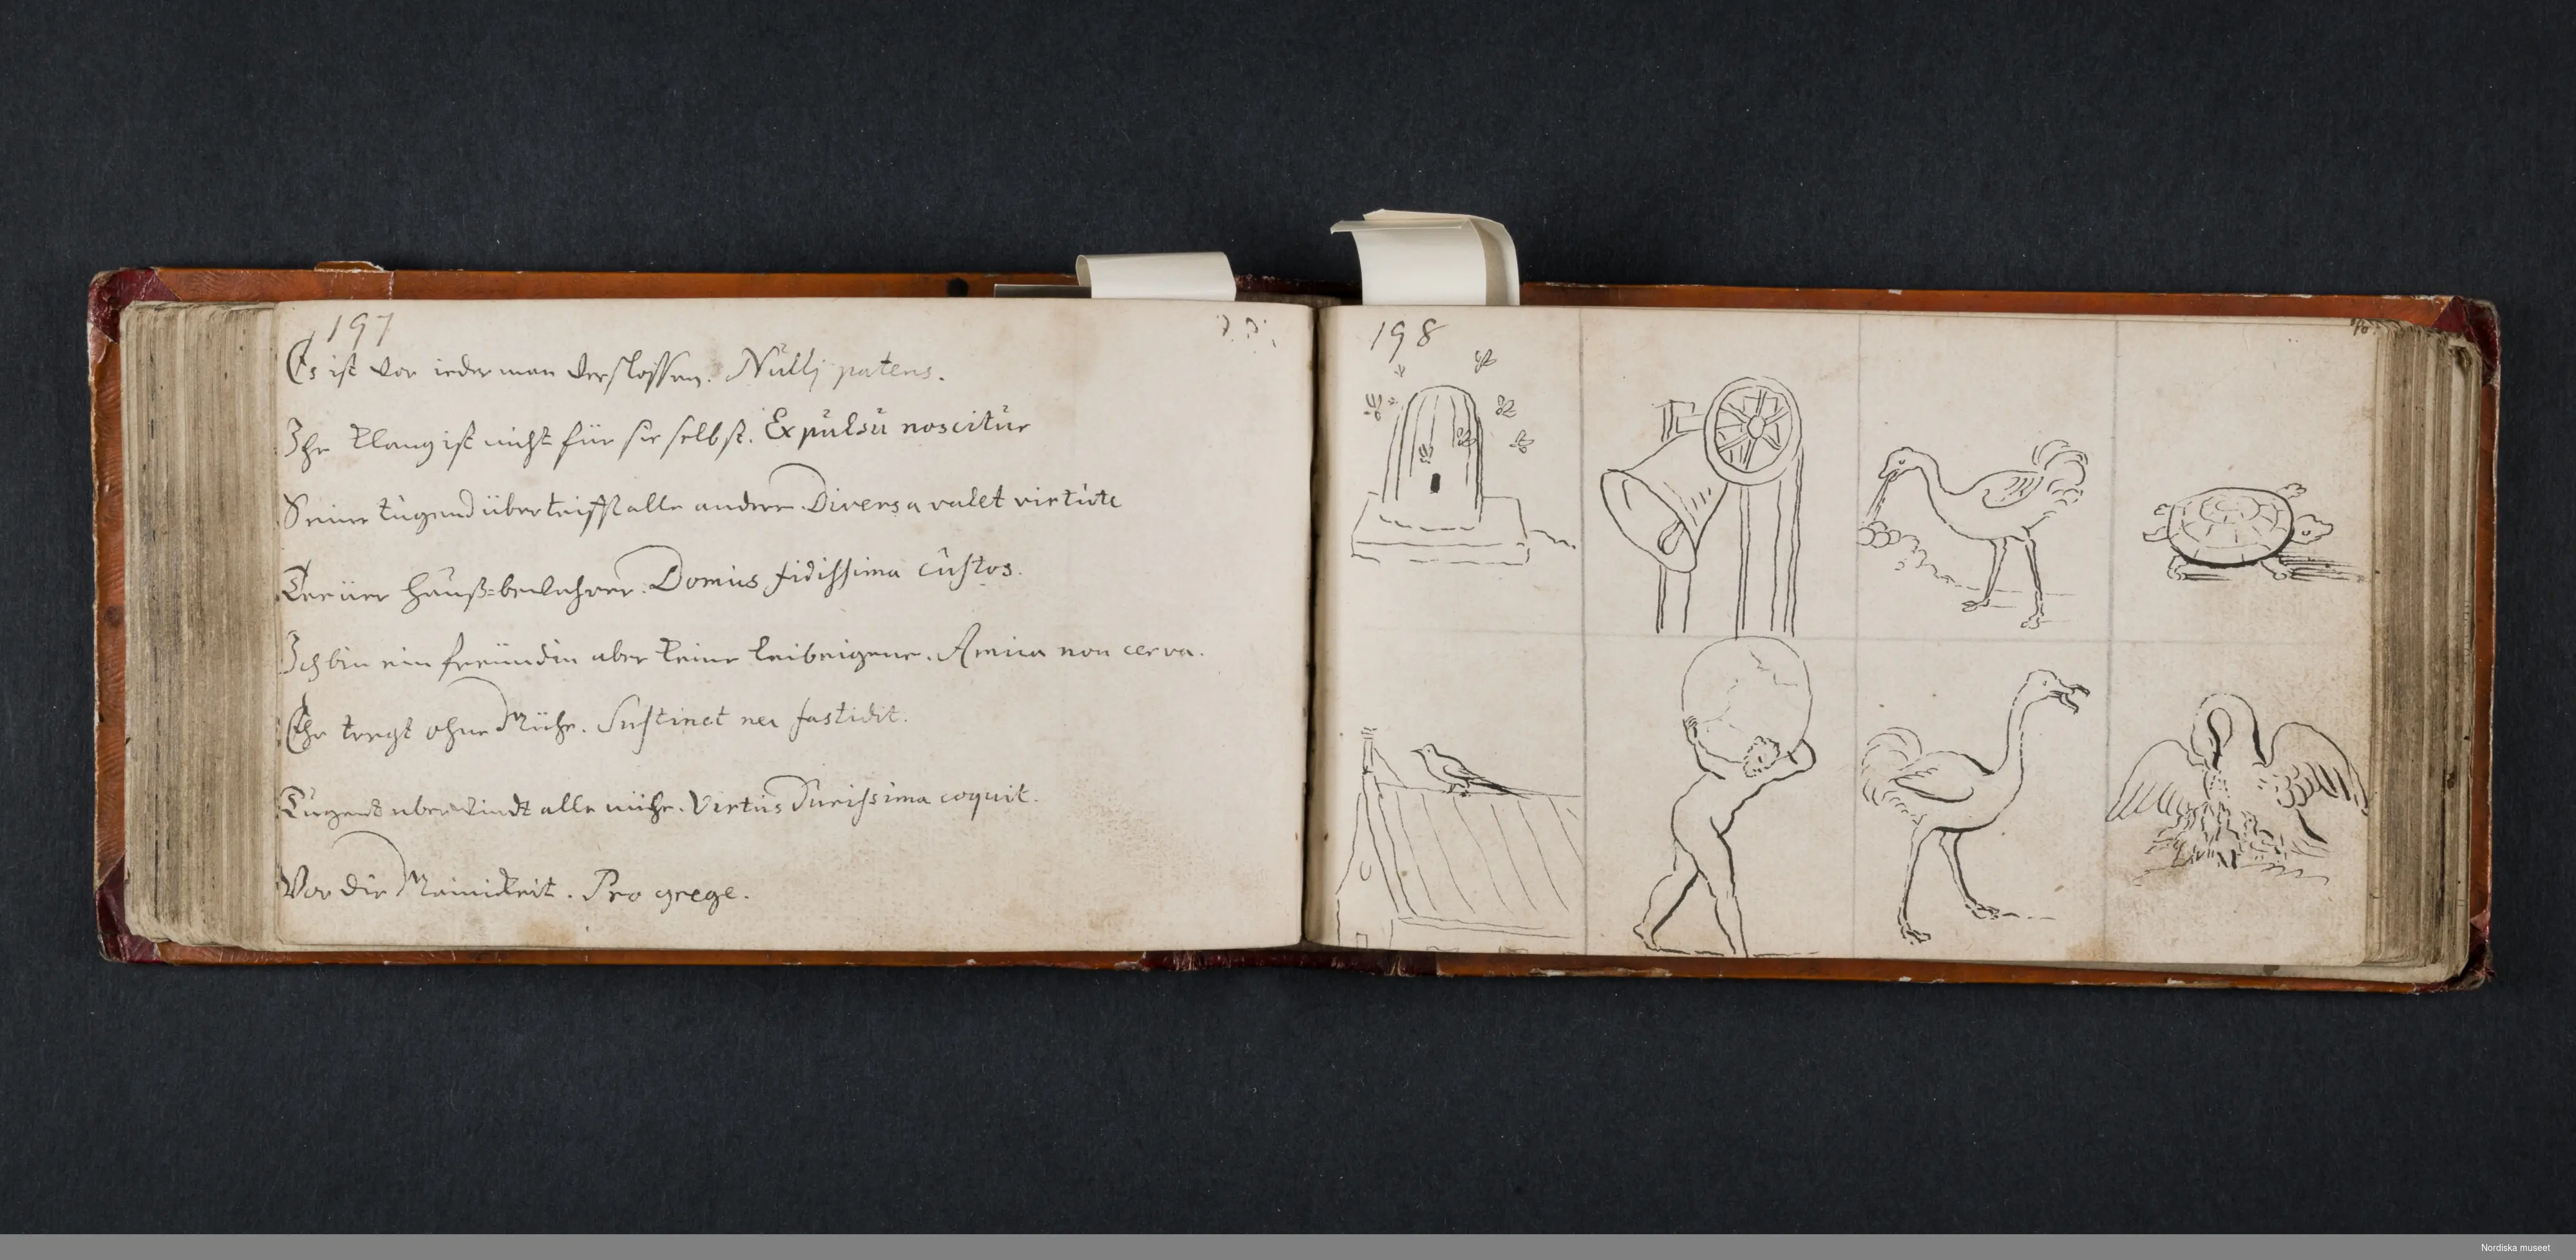 197
Es ist vor iederman verslossen. Nullj patens.
Ihr klang ist nicht für sie selbst. Expulsu noscitur
Seine tugend übertrifft alle andere. Diversa valet virtute
Treüer Hauß=bewahrer. Domus fidissima custos.
Ich bin ein freündin aber keine leibeigene. Amica non cerva.
Ehr tregt ohne Mühe. Sustinet nec fastidit.
Tugendt uberwindt alle mühe. Virtus durissima coquit.
Vor die . Pro grege.
198
Nordiska museet